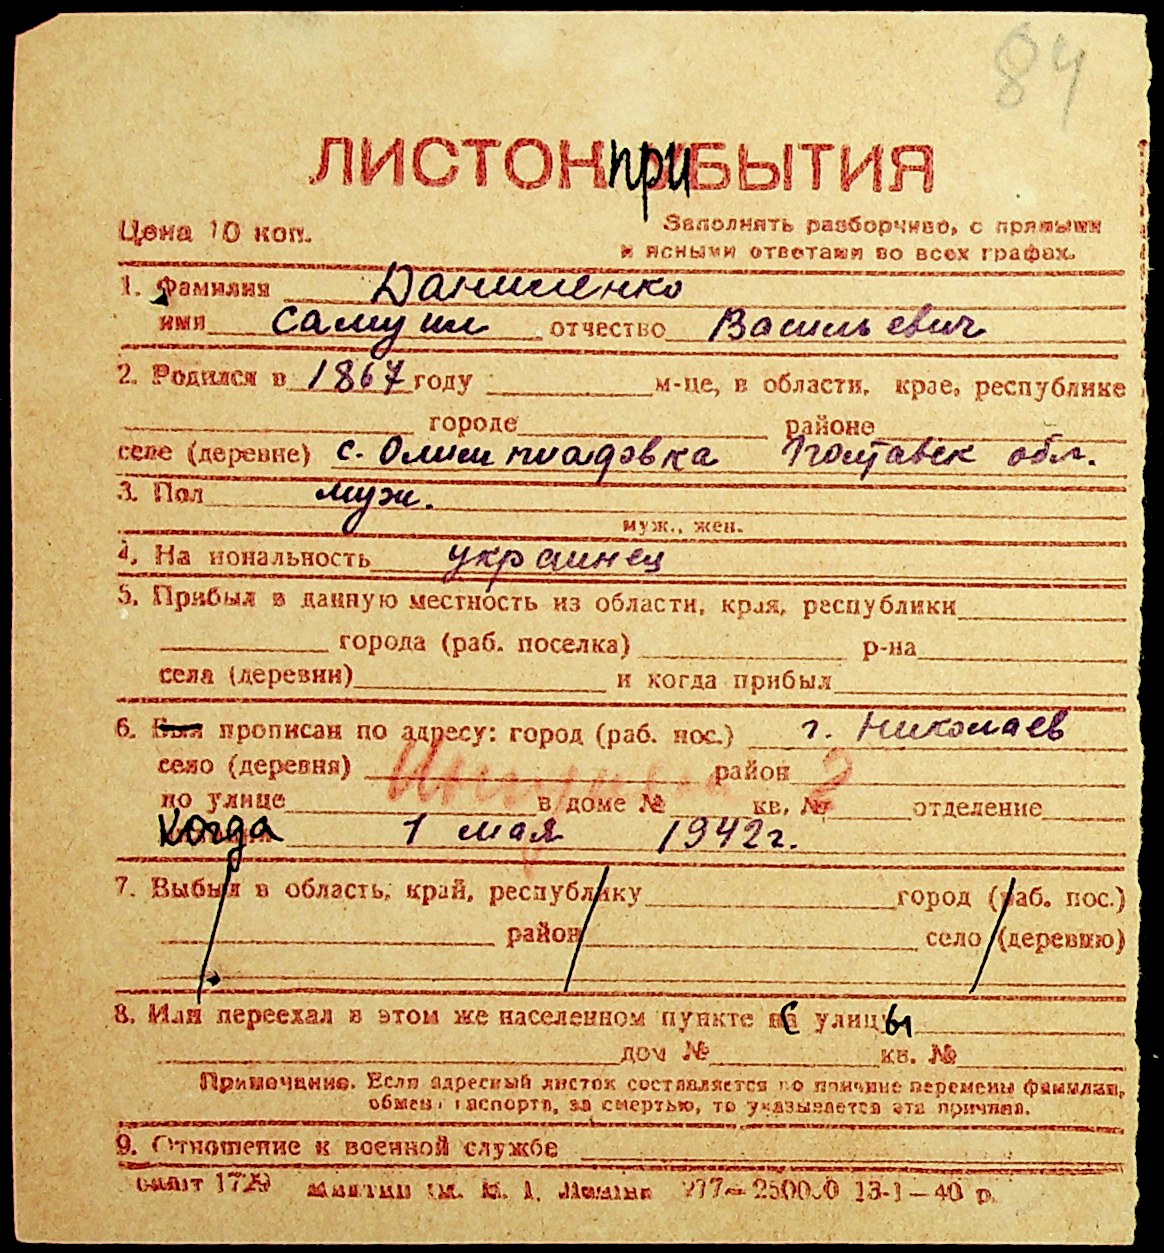 84
ЛИСТОК ПРИБЫТИЯ
Цена 10 коп.
Заполнять разборчиво, с прямыми
и ясными ответами во всех графах.
1. Фамилия Даниленко
имя Самуил отчество Васильевич
2. Родился в 1867 году м-це, в области, крае, республике
городе районе
селе (деревне) с. Олимпиадовка Полтавск обл.
3. Пол муж.
муж., жен.
4. Национальность украинец
5. Прибыл в данную местность из области, края, республики
города (раб. поселка) р-на
села (деревни) и когда прибыл
6. Был прописан по адресу: город (раб. пос.) г. Николаев
село (деревня) район 2
по улице в доме № кв. № отделение
когда 1 мая 1942 г.
7. Выбыл в область, край, республику город (раб. пос.)
район село (деревню)
8. Или переехал в этом же населенном пункте с улицы
дом № кв. №
Примечание. Если адресный листок составляется по причине перемены фамилии,
обмена паспорта, за смертью, то указывается эта причина.
9. Отношение к военной службе
1729 им. В. И. Ленина 277—250000 13-1—40 р.